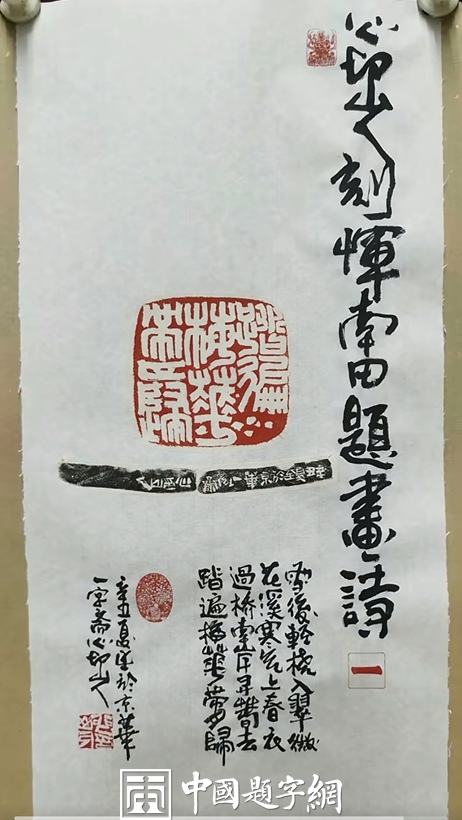 心印山人刻惲南田題畫詩
一
踏遍
梅華
帶月歸
雪後輕橈入翠微
花溪寒气上春衣
過橋南岸尋萅去
踏遍梅華帶月歸
辛丑夏於京華
一字齋心印山人
中國題字網